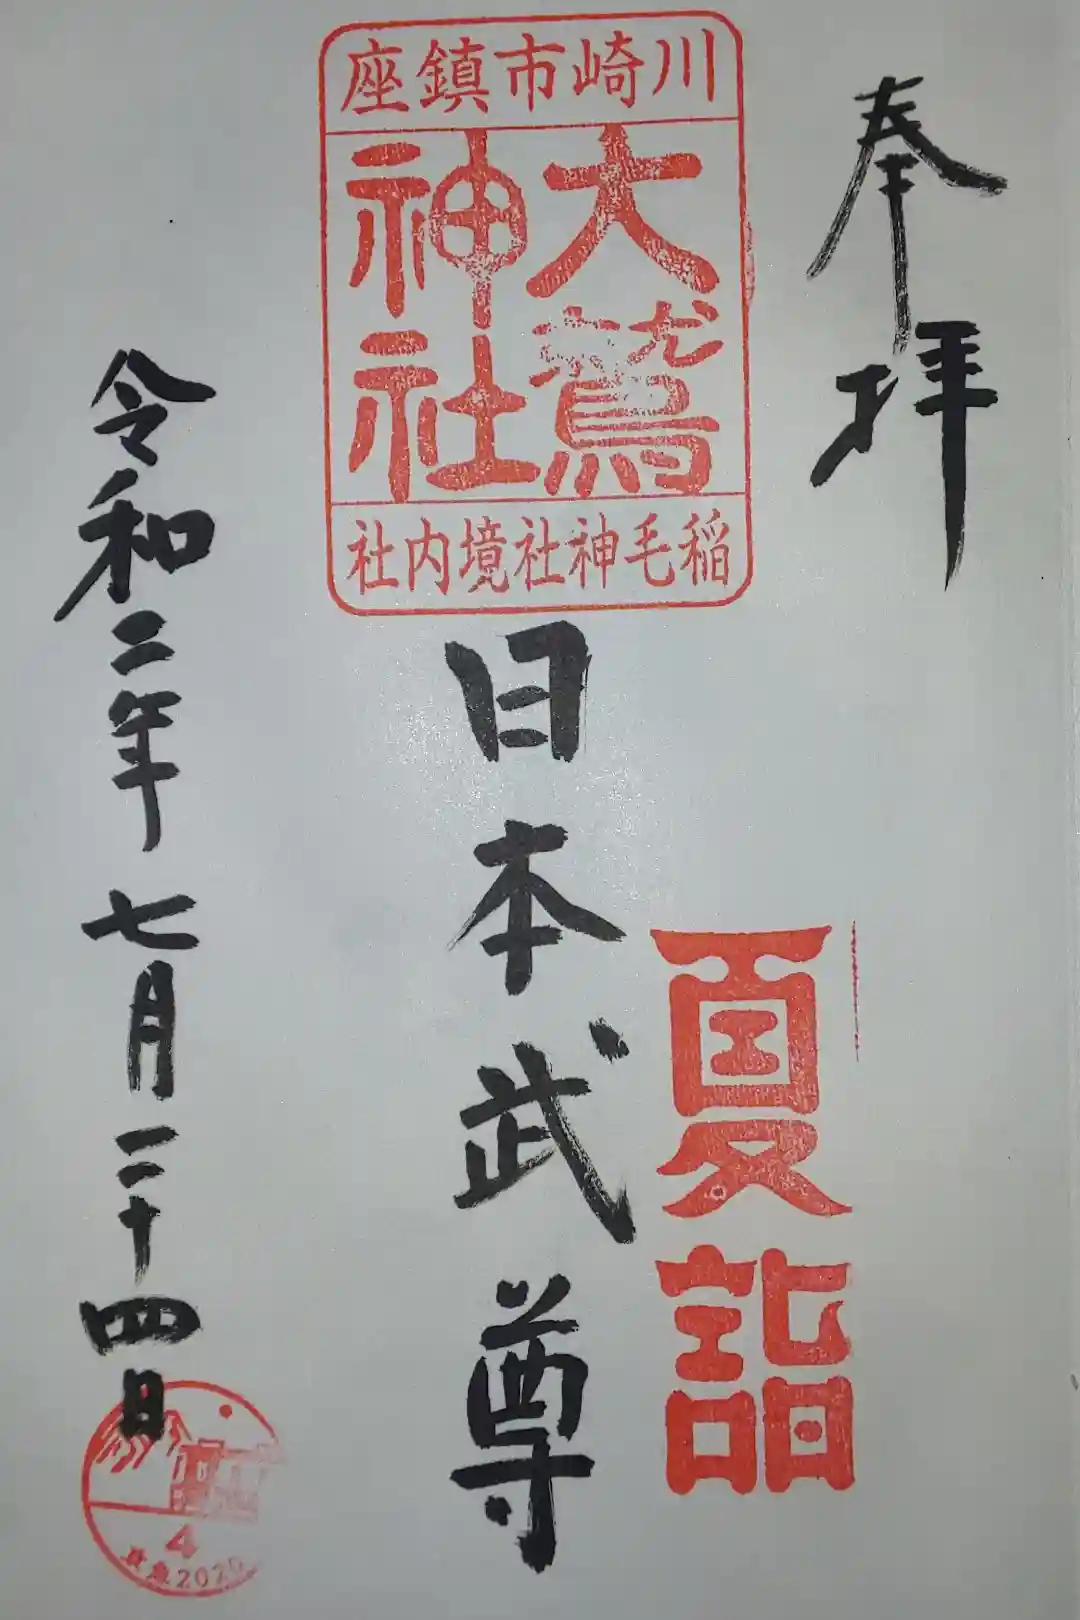 奉拝
川崎市鎮座
大鷲
神社
稲毛神社境内社
日本武尊
夏詣
令和二年七月二十四日
4
2020